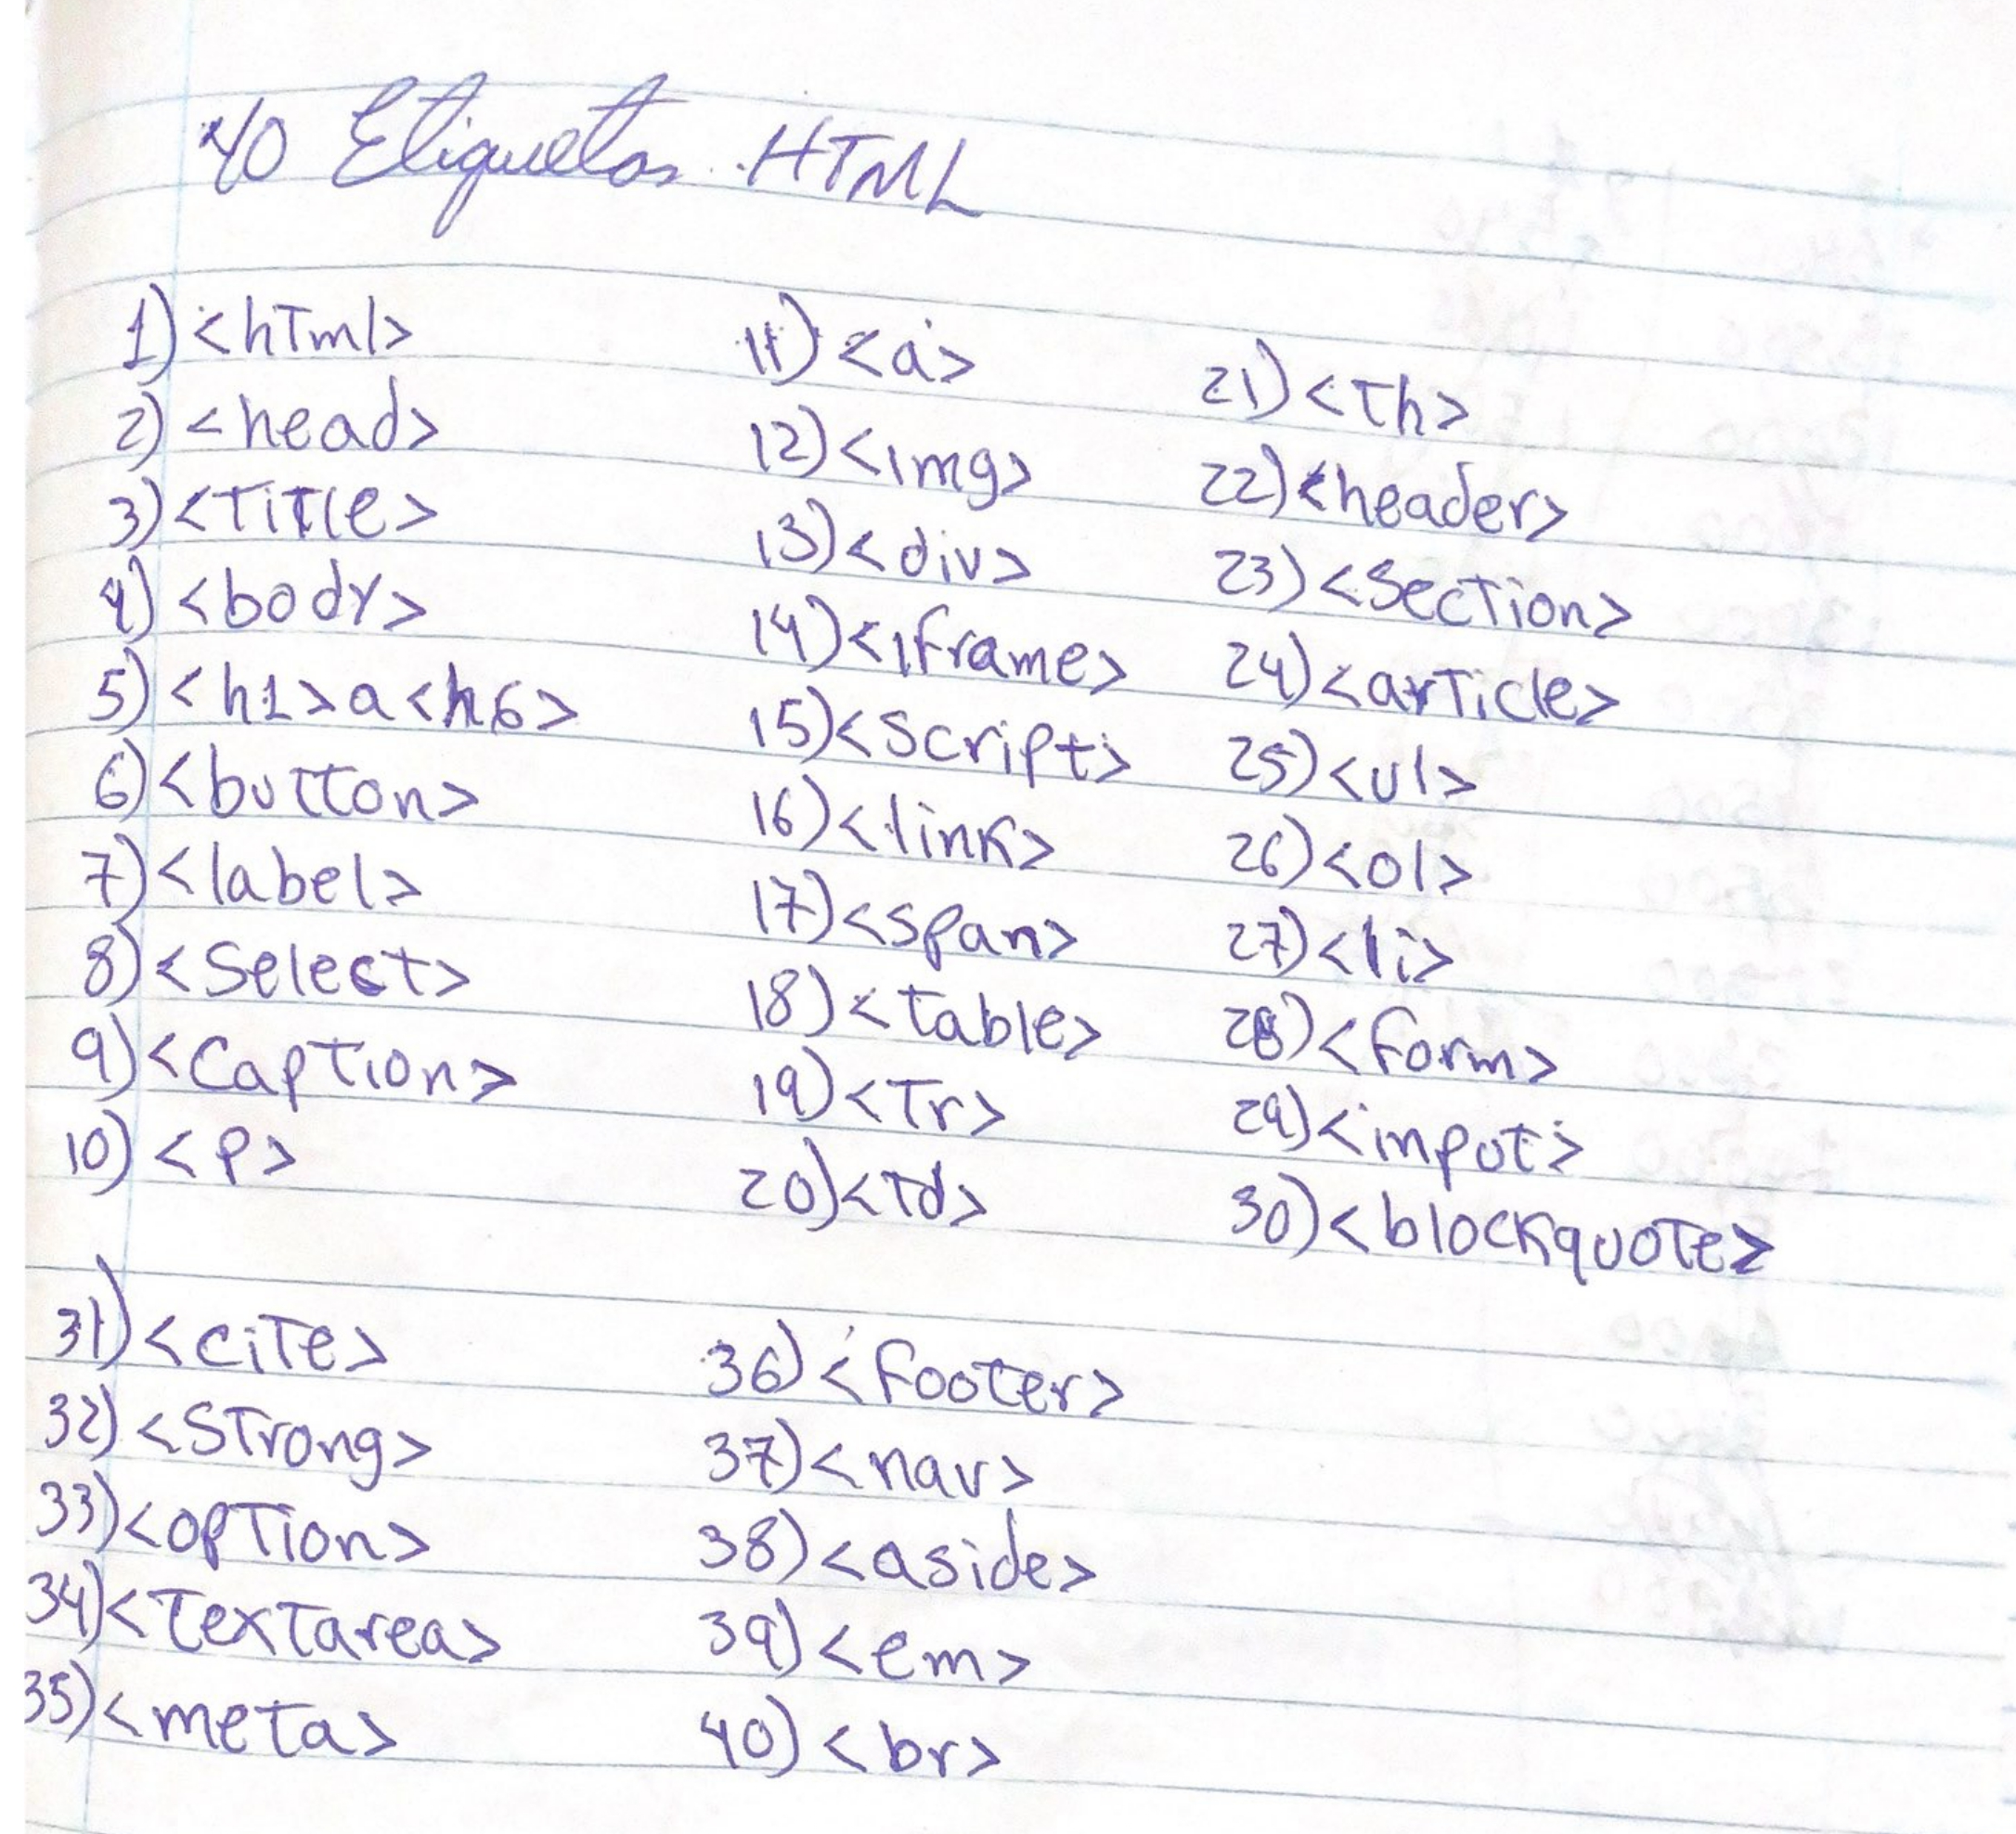 40 Etiquetas HTML
1) <html>
2) <head>
3) <Title>
4) <body>
5) <h1> a <h6>
6) <button>
7) <label>
8) <Select>
9) <Caption>
10) <p>
11) <a>
12) <img>
13) <div>
14) <iframe>
15) <script>
16) <link>
17) <span>
18) <table>
19) <Tr>
20) <Td>
21) <Th>
22) <header>
23) <Section>
24) <article>
25) <ul>
26) <ol>
27) <li>
28) <form>
29) <input>
30) <blockquote>
31) <cite>
32) <Strong>
33) <option>
34) <Textarea>
35) <meta>
36) <footer>
37) <nav>
38) <aside>
39) <em>
40) <br>